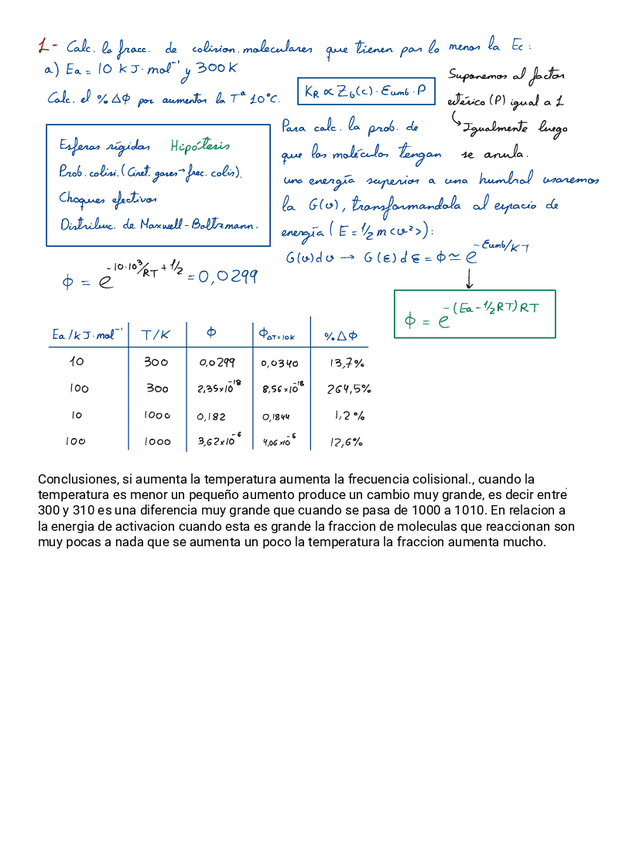 1- Calc. la fracc. de colision. moleculares que tienen por lo menos la Ec:
a) Ea = 10 kJ·mol⁻¹ y 300K
Calc. el %Δϕ por aumentar la Tª 10°C.
K_R ∝ Z_b(c)·Eumb·P
Suponemos al factor
estérico (P) igual a 1
↳ Igualmente luego
se anula.
Esferas rígidas Hipótesis
Prob. colisi. (Cinet. gases → frec. colis).
Choques efectivos
Distribuc. de Maxwell-Boltzmann.
Para calc. la prob. de
que las moléculas tengan
una energía superior a una humbral usaremos
la G(v), transformandola al espacio de
energía (E = 1/2 m<v²>):
G(v)dv → G(ε)dε = ϕ ≃ e^(-εumb/KT)
ϕ = e^(-10·10³/RT + 1/2) = 0,0299
ϕ = e^(-(Ea-1/2RT)RT)
Ea/kJ·mol⁻¹ T/K ϕ ϕ_ΔT=10K %Δϕ
10 300 0,0299 0,0340 13,7%
100 300 2,35×10⁻¹⁸ 8,56×10⁻¹⁸ 264,5%
10 1000 0,182 0,1844 1,2%
100 1000 3,62×10⁻⁶ 4,06×10⁻⁶ 12,6%
Conclusiones, si aumenta la temperatura aumenta la frecuencia colisional., cuando la
temperatura es menor un pequeño aumento produce un cambio muy grande, es decir entre
300 y 310 es una diferencia muy grande que cuando se pasa de 1000 a 1010. En relacion a
la energia de activacion cuando esta es grande la fraccion de moleculas que reaccionan son
muy pocas a nada que se aumenta un poco la temperatura la fraccion aumenta mucho.